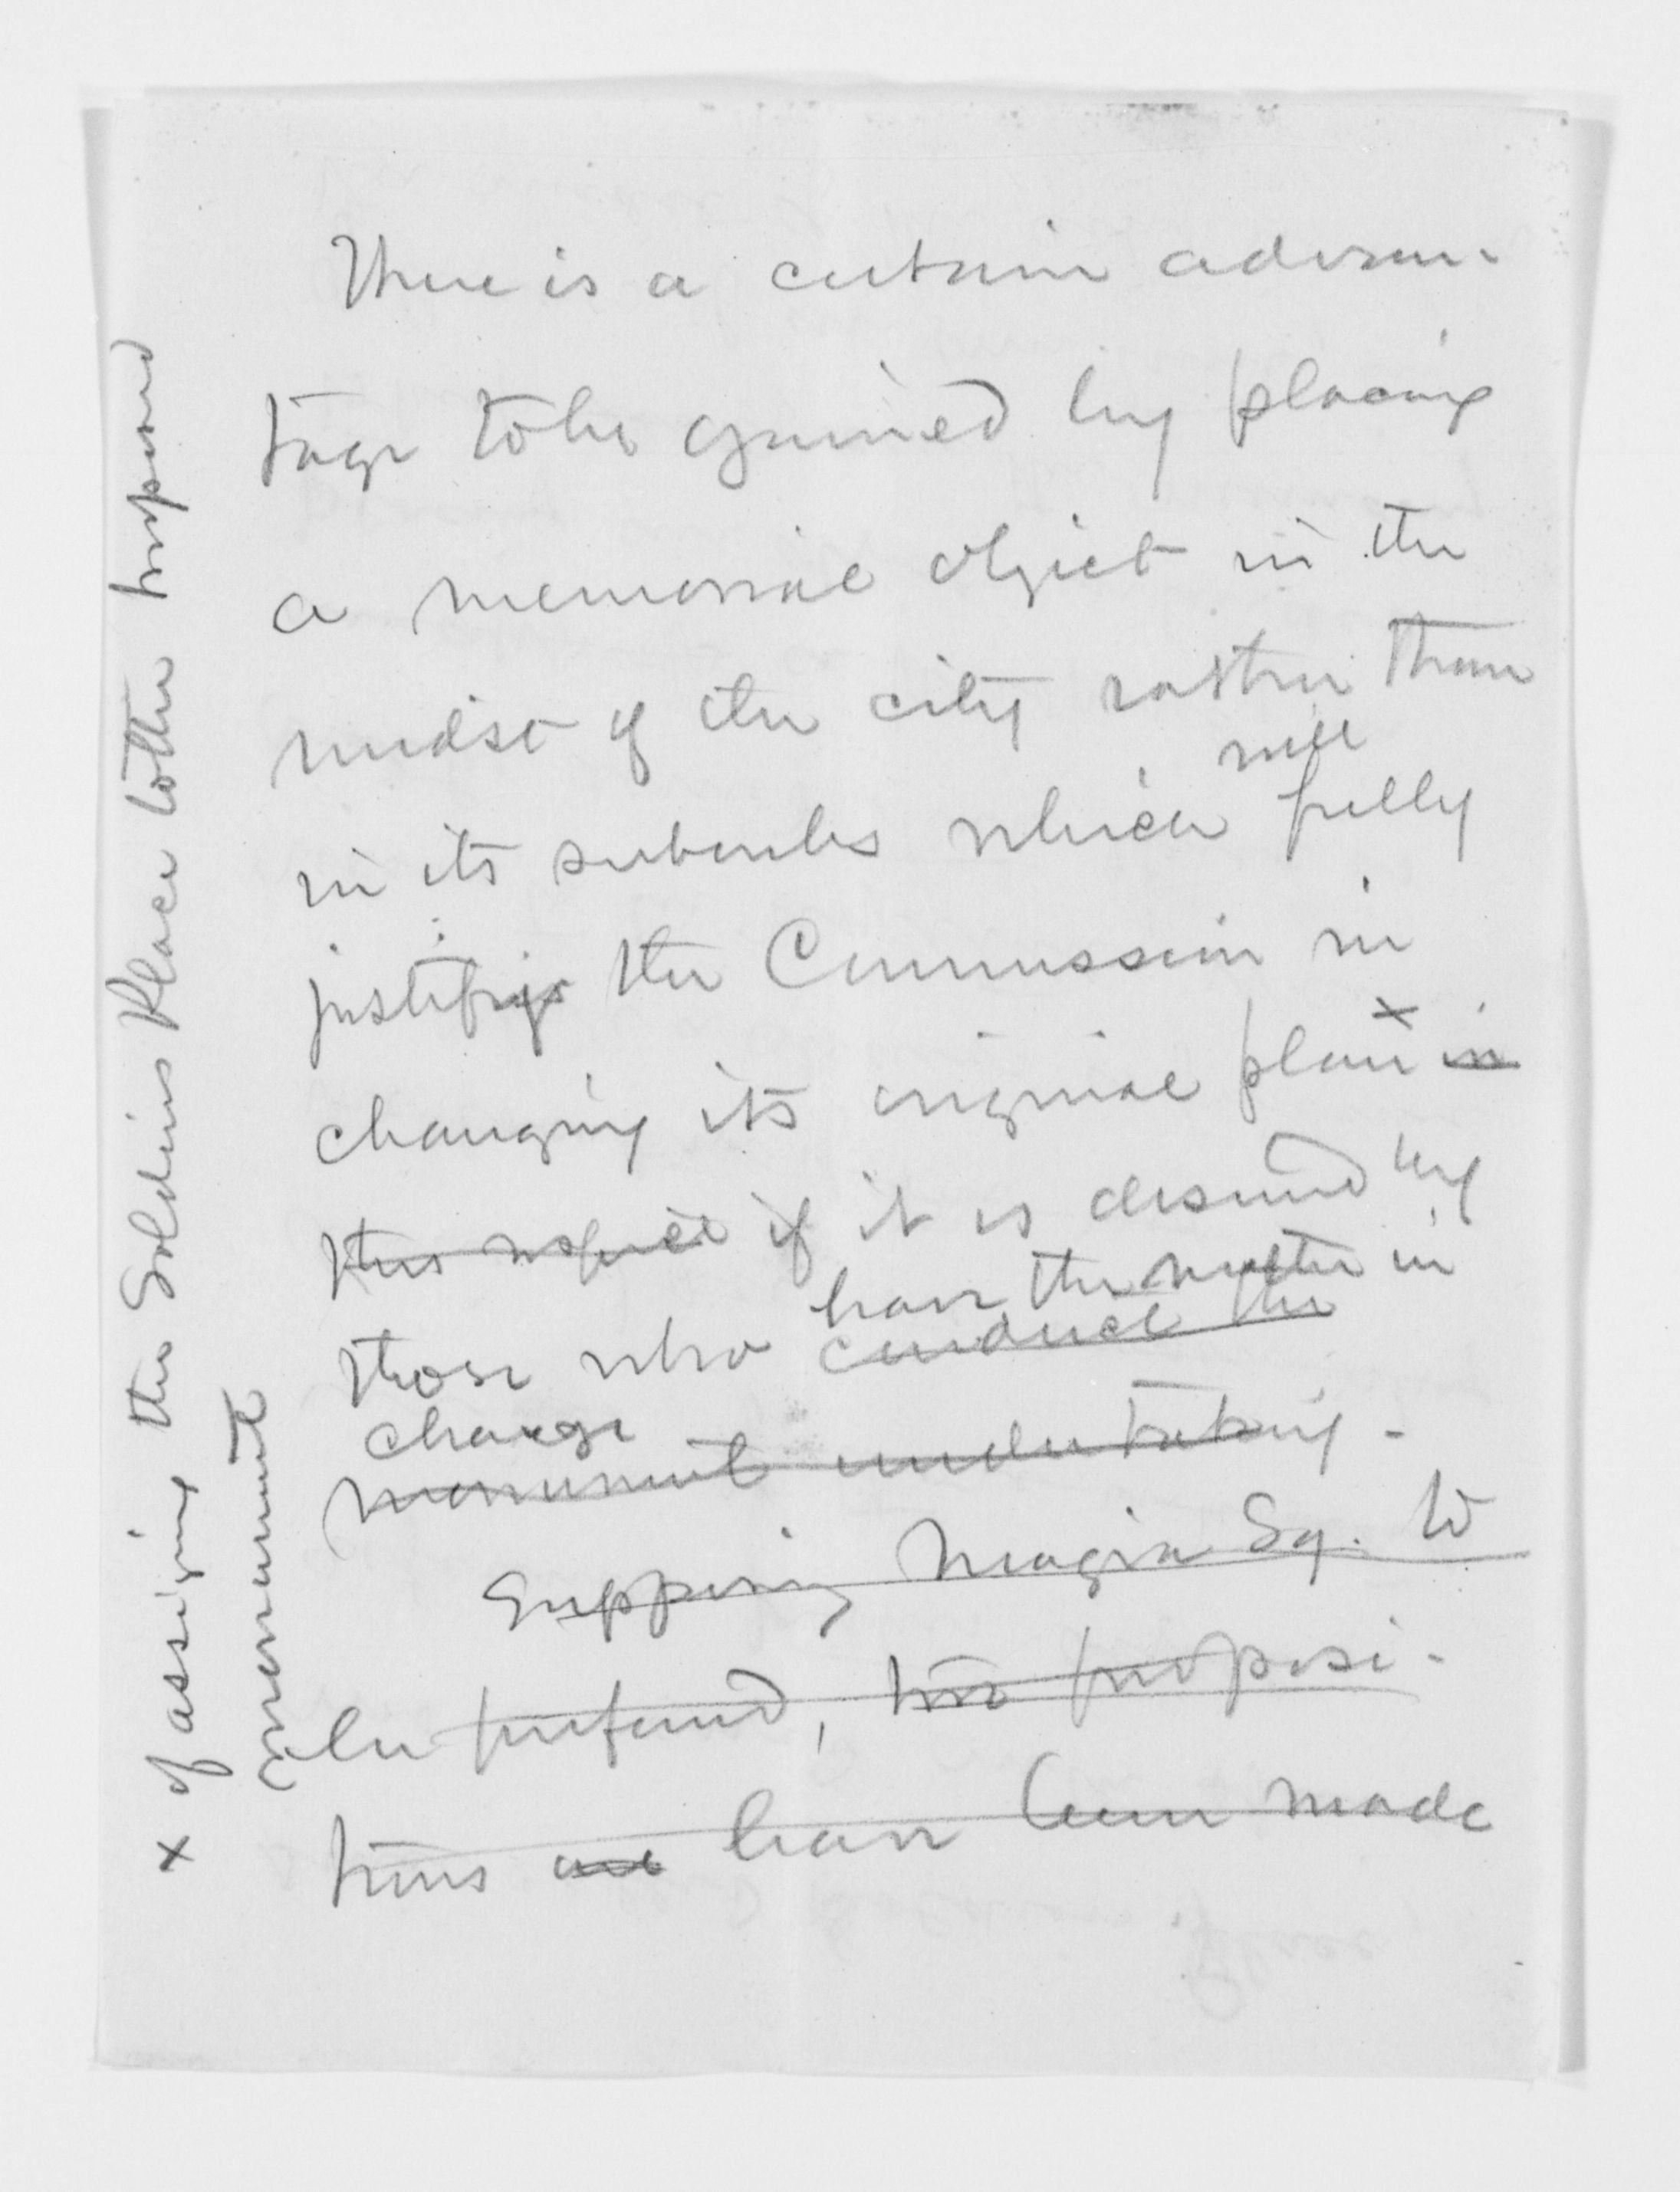 There is a certain advan-
tage to be gained by placing
a memorial object in the
midst of the city rather than
will
in its suburbs which fully
justifys the Commission in
changing its original plan x in
this respect if it is desired by
have the matter in
those who conduct the
charge
monument undertaking.
Supposing Niagra Sq. to
be prefered, two proposi-
tions are have been made
x of assigning the Soldiers Place to the proposed
monument